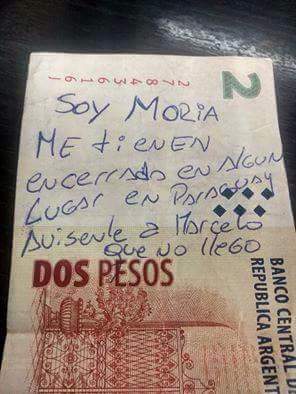 2
SOY MORIA
ME tiENEN
encerrado en ALgun
Lugar en Paraguay
Avisenle a Marcelo
que no llego
DOS PESOS
BANCO CENTRAL DE
REPUBLICA ARGENT